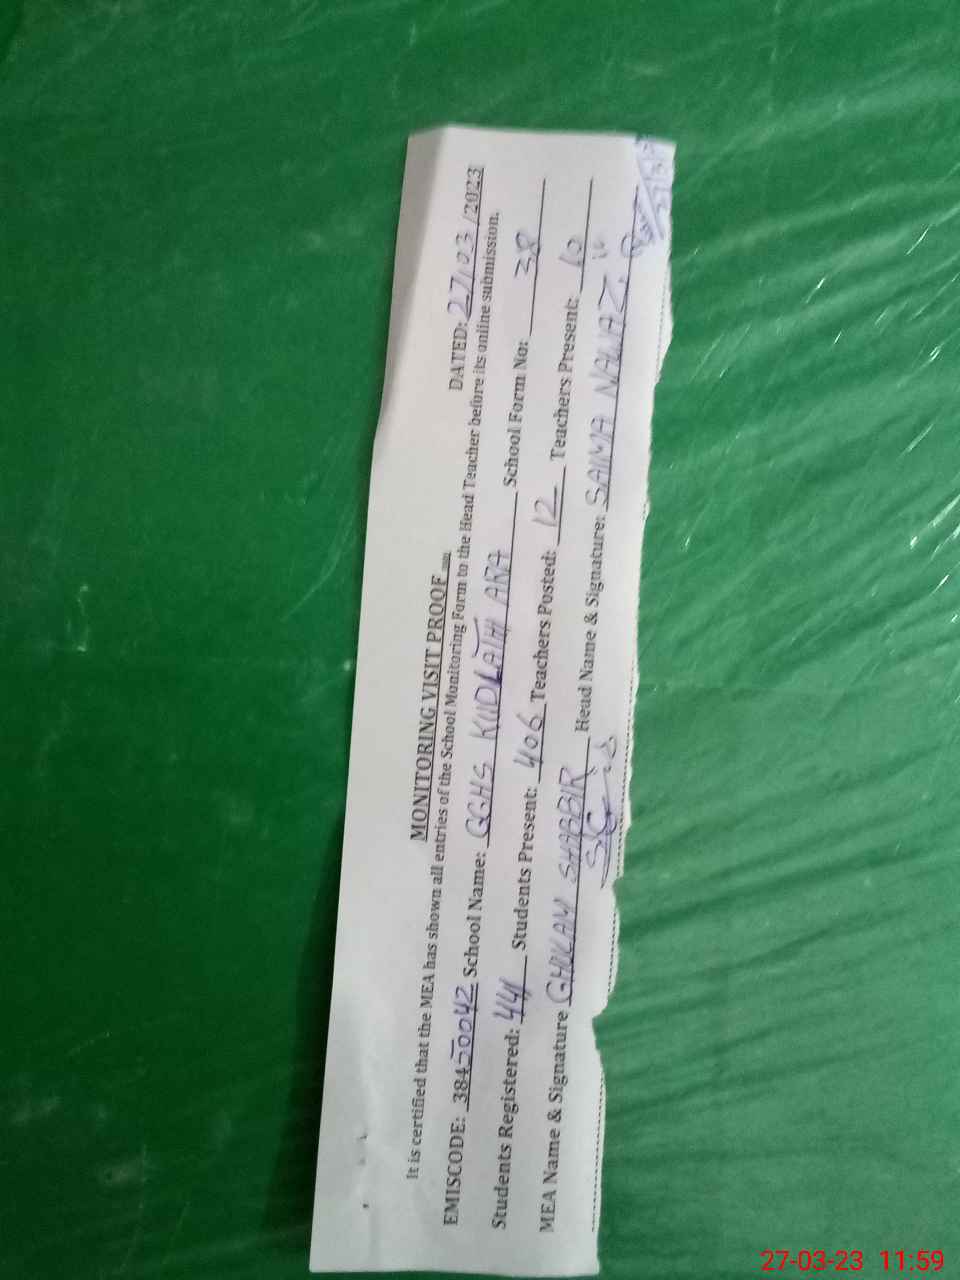 MONITORING VISIT PROOF
DATED: 27/03/2023
It is certified that the MEA has shown all entries of the School Monitoring Form to the Head Teacher before its online submission.
EMISCODE: 38450042 School Name: GGHS KUDLATHI ARA School Form No: 38
Students Registered: 441 Students Present: 406 Teachers Posted: 12 Teachers Present: 10
MEA Name & Signature GHULAM SHABBIR Head Name & Signature: SAIMA NAWAZ
27-03-23 11:59